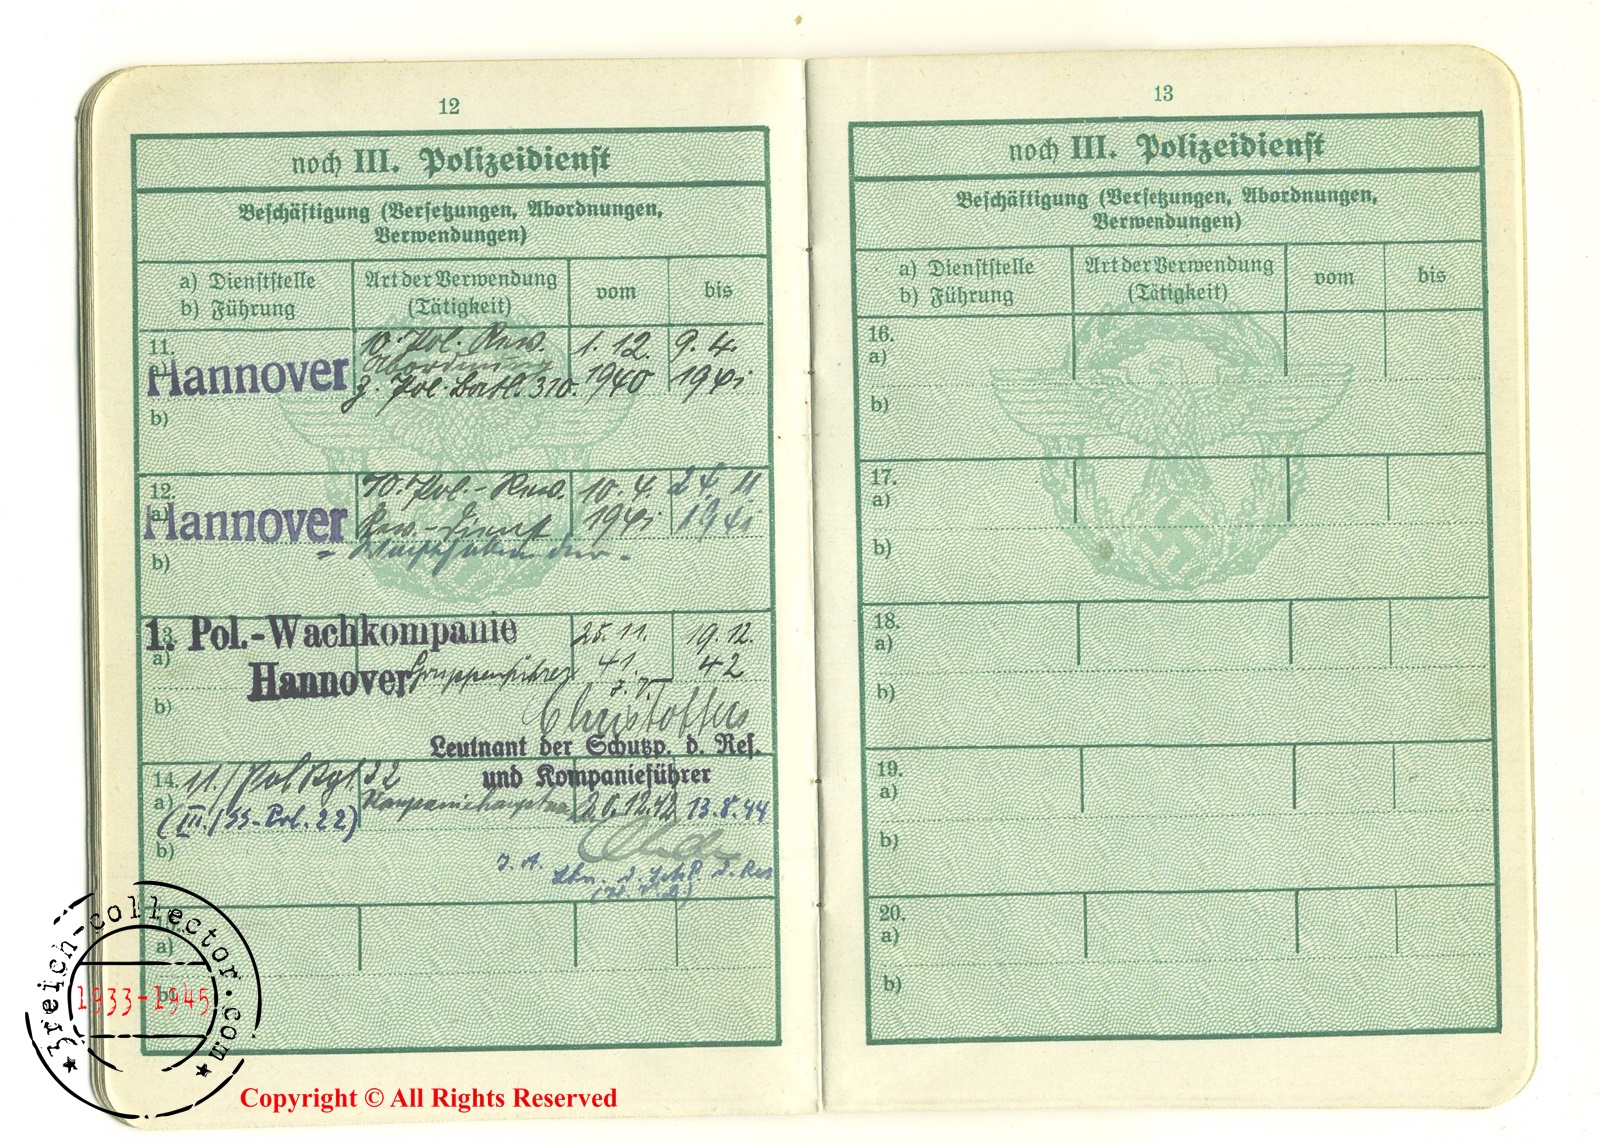 12
noch III. Polizeidienst
Beschäftigung (Versetzungen, Abordnungen,
Verwendungen)
a) Dienststelle
b) Führung
Art der Verwendung
(Tätigkeit)
vom
bis
11.
a)
Hannover
10. Pol. Rev.
Abordnung
z. Pol. Batl. 310.
1. 12.
1940
9. 4.
1941
b)
12.
a)
Hannover
10. Pol.-Rev.
Rev.-Dienst
10. 4.
1941
24. 11
1941
b)
13.
a)
1. Pol.-Wachkompanie
Hannover
Gruppenführer
25. 11.
41.
19. 12.
42
b)
Christoffers
Leutnant der Schutzp. d. Res.
und Kompanieführer
14.
a)
11./Pol Rgt. 22
(III./SS-Pol. 22)
20.12.42
13.8.44
b)
J. A.
Ltn. d. Schp. d. Res
a)
b)
13
noch III. Polizeidienst
Beschäftigung (Versetzungen, Abordnungen,
Verwendungen)
a) Dienststelle
b) Führung
Art der Verwendung
(Tätigkeit)
vom
bis
16.
a)
b)
17.
a)
b)
18.
a)
b)
19.
a)
b)
20.
a)
b)
3reich-collector.com
1933-1945
Copyright © All Rights Reserved